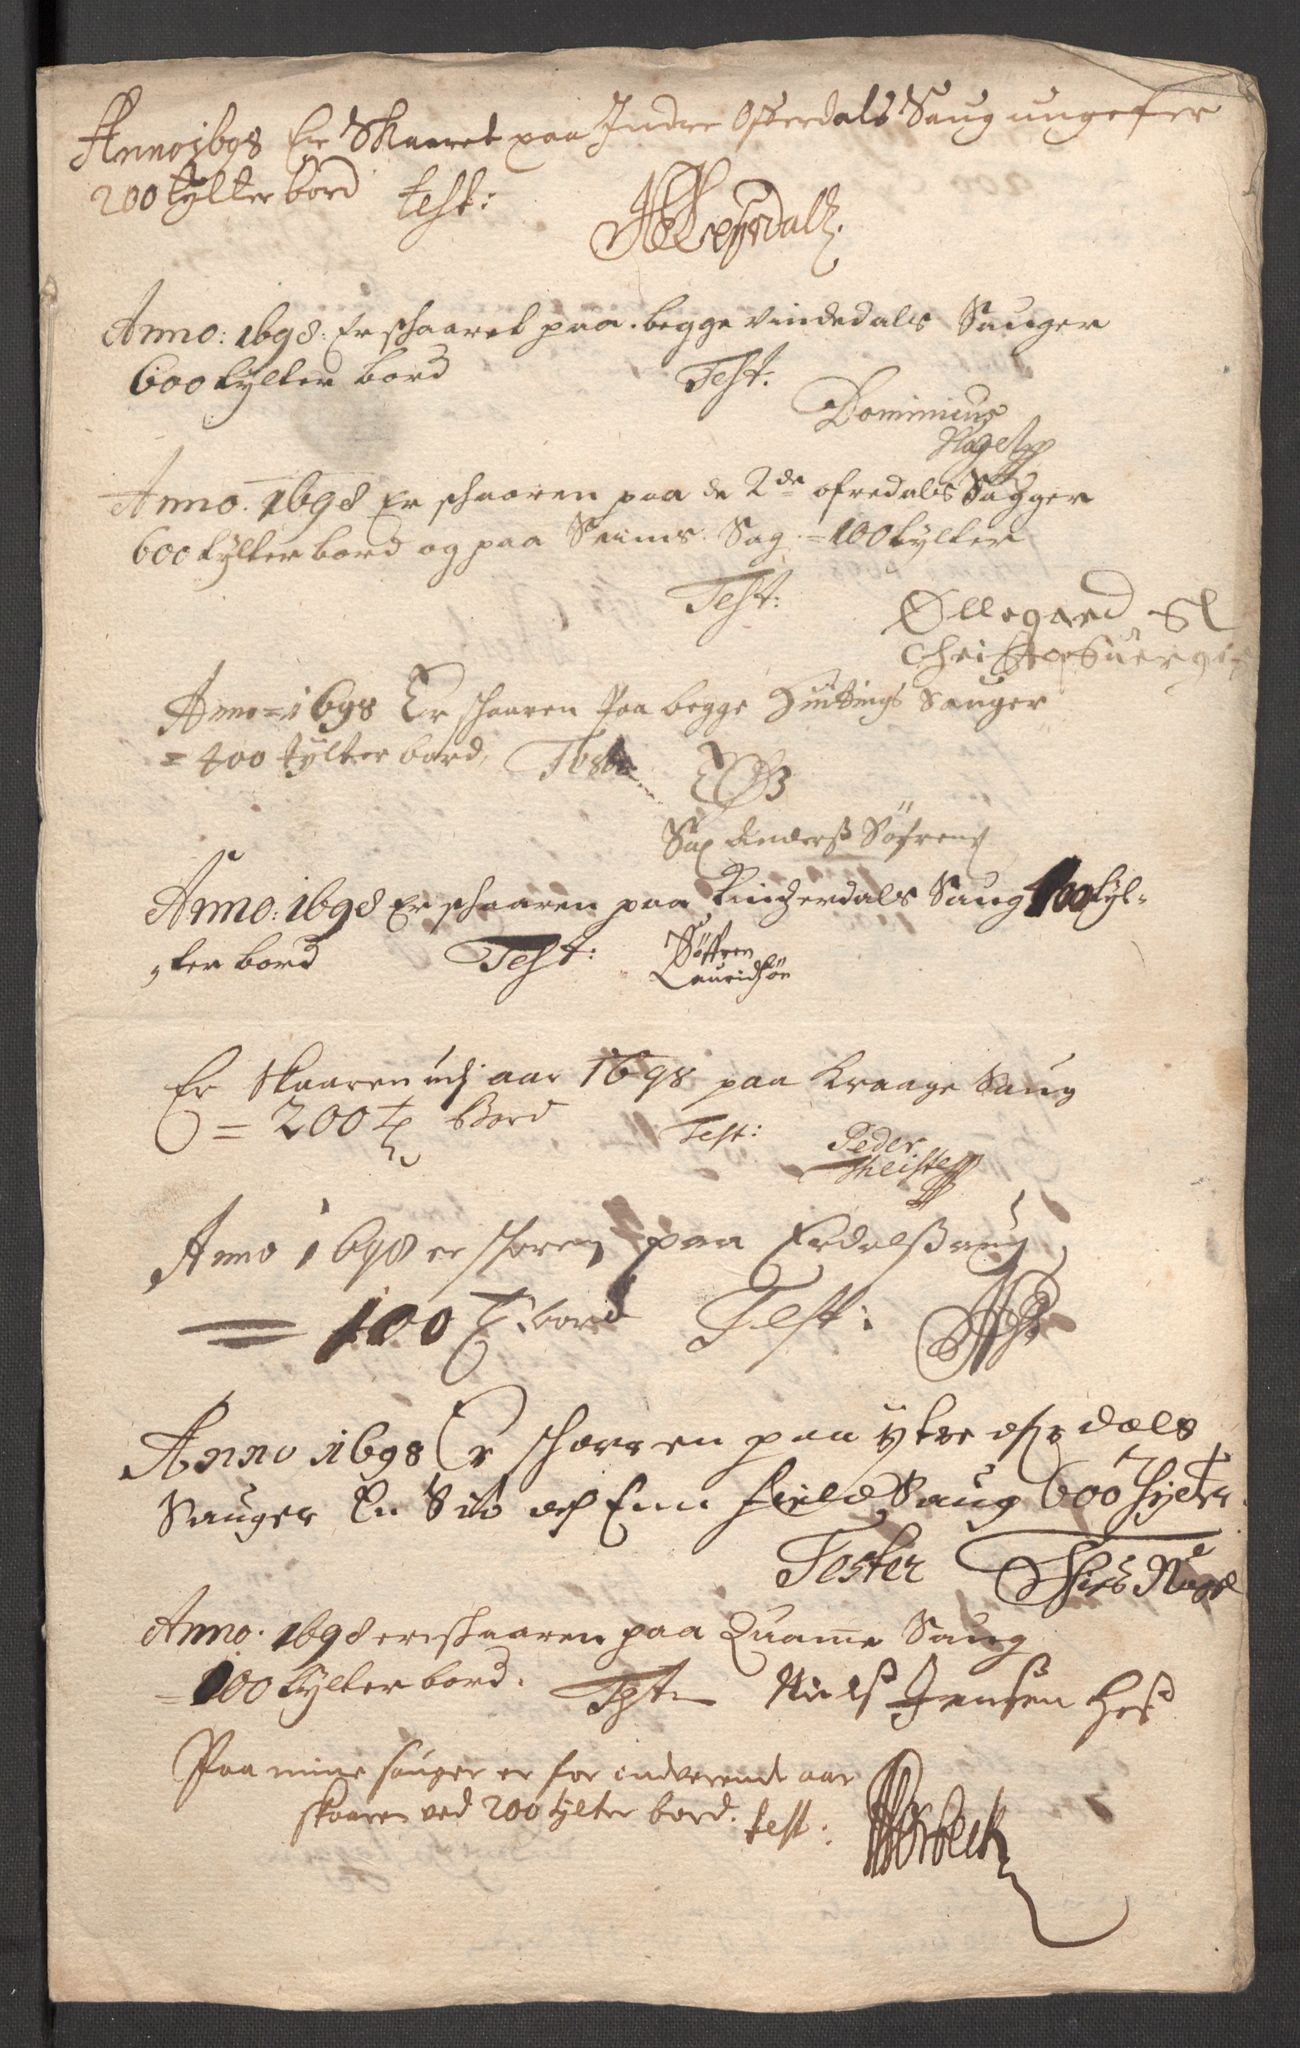 Anno 1698 Er Skaaret paa Indre Offerdals Saug ungefer
200 tylter bord test:
Anno: 1698: Er schaaret paa begge Vindedals Sauger
600 tylter bord Test:
Dominicus
Nagel
Anno. 1698 Er schaaren paa de 2de ofredals Sagger
600 tylter bord og paa Seims Sag = 100 tylter
Test:
Øllegaard Sl
Christopher
Anno = 1698 Er schaaren Paa begge Sauger
= 400 tylter bord, Test
Sal Anderss Söfrens
Anno: 1698 Er schaaren paa Saug 100 tyl-
ter bord Test: Söffren
Lauridsön
Er Skaaren udj aar 1698 paa Kraage Saug
= 200 tl Bord Test: Peder
Anno 1698 er skoren paa Erdalssaug
= 100 T bord Test:
Anno 1698 Er schorren paa ytre dals
Sauger En Sib och Enn field Saug 600 Tylter
Tester Thies Nagel
Anno. 1698 er schaaren paa Quame Saug
= 100 tylter bord. Test Niels Jensen Hess
Paa mine sauger er for indverende aar
skaaren ved 200 tylter bord. test: